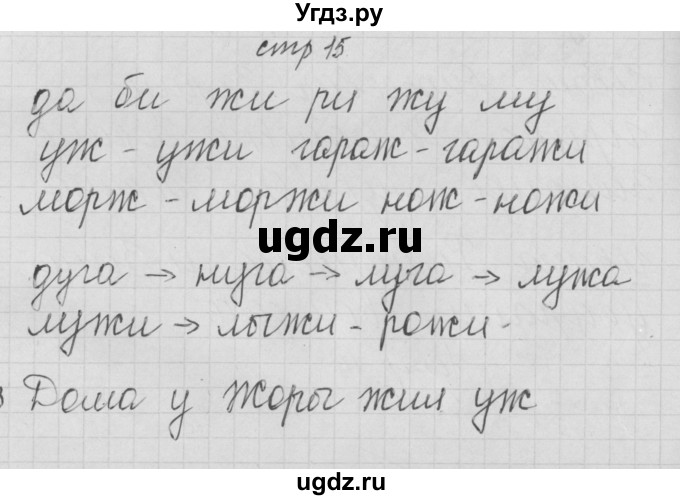 Угдз.ру
стр 15
да би жи ри жу му
уж - ужи гараж - гаражи
морж - моржи нож - ножи
ugdz.ru
дуга → нуга → луга → лужа
лужи → лыжи - рожи -
Дома у Жоры жил уж
ugdz.ru